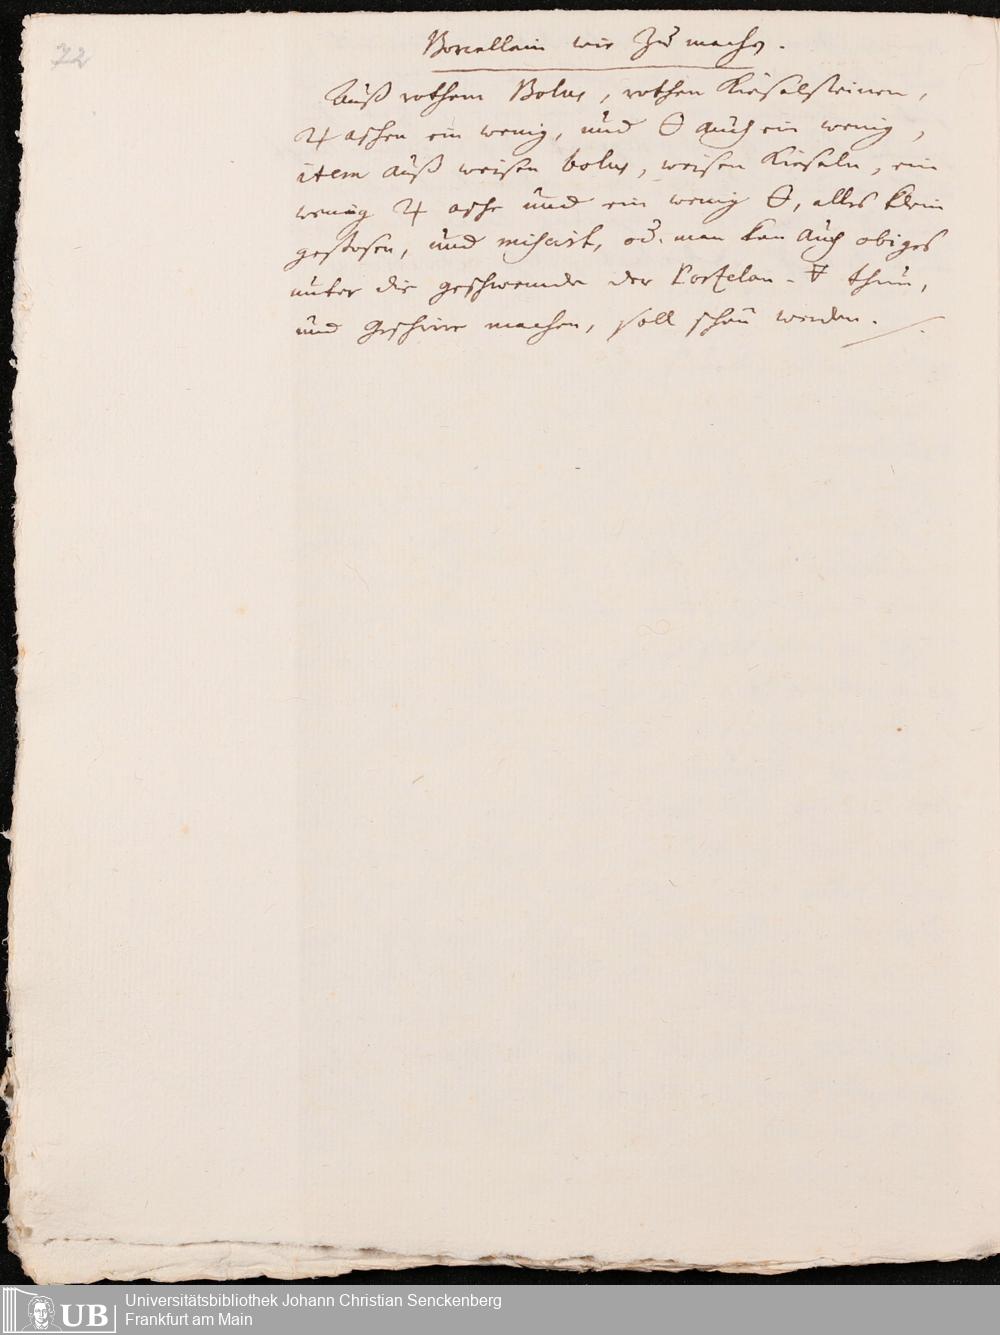 72
Borcellain wie zu machen.
Auß rothem Bolus, rothen Kieselsteinen,
♃ aschen ein wenig, und 🜔 auch ein wenig,
item auß weisen bolus, weisen Kieseln, ein
wenig ♃ asche und ein wenig 🜔, alles klein
gestosen, und mischt, od. man kan auch obiges
unter die geschwemde der Porzelan-🜃 thun,
und Geschirr machen, soll schön werden.
Universitätsbibliothek Johann Christian Senckenberg
UB Frankfurt am Main